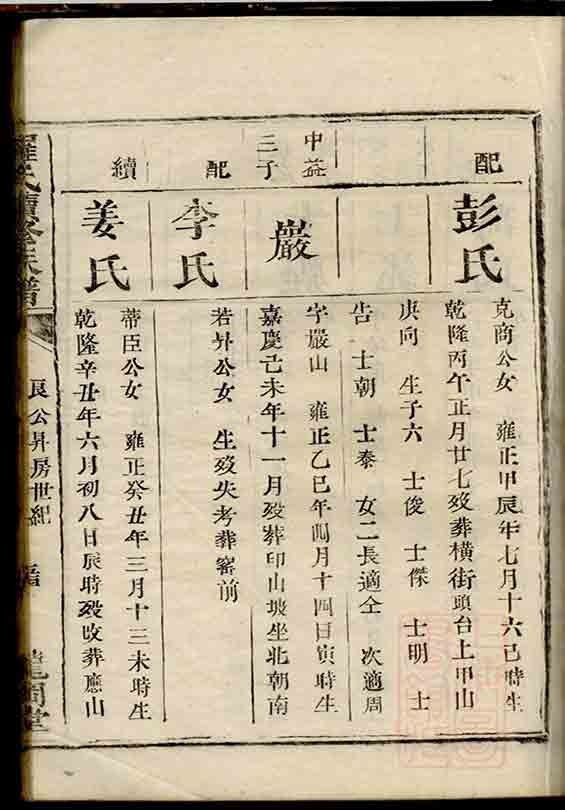 配
彭氏
克商公女　雍正甲辰年七月十六己時生
乾隆丙午正月廿七歿葬橫街頭台上甲山
庚向　生子六　士俊　士傑　士明　士
告　士朝　士泰　女二長適仝　次適周
中益
三子
嚴
字嚴山　雍正乙巳年四月十四日寅時生
嘉慶己未年十一月歿葬印山坡坐北朝南
配
李氏
若升公女　生歿失考葬窰前
續
姜氏
蒂臣公女　雍正癸丑年三月十三未時生
乾隆辛丑年六月初八日辰時歿改葬應山
羅氏續修族譜
良公昇房世紀